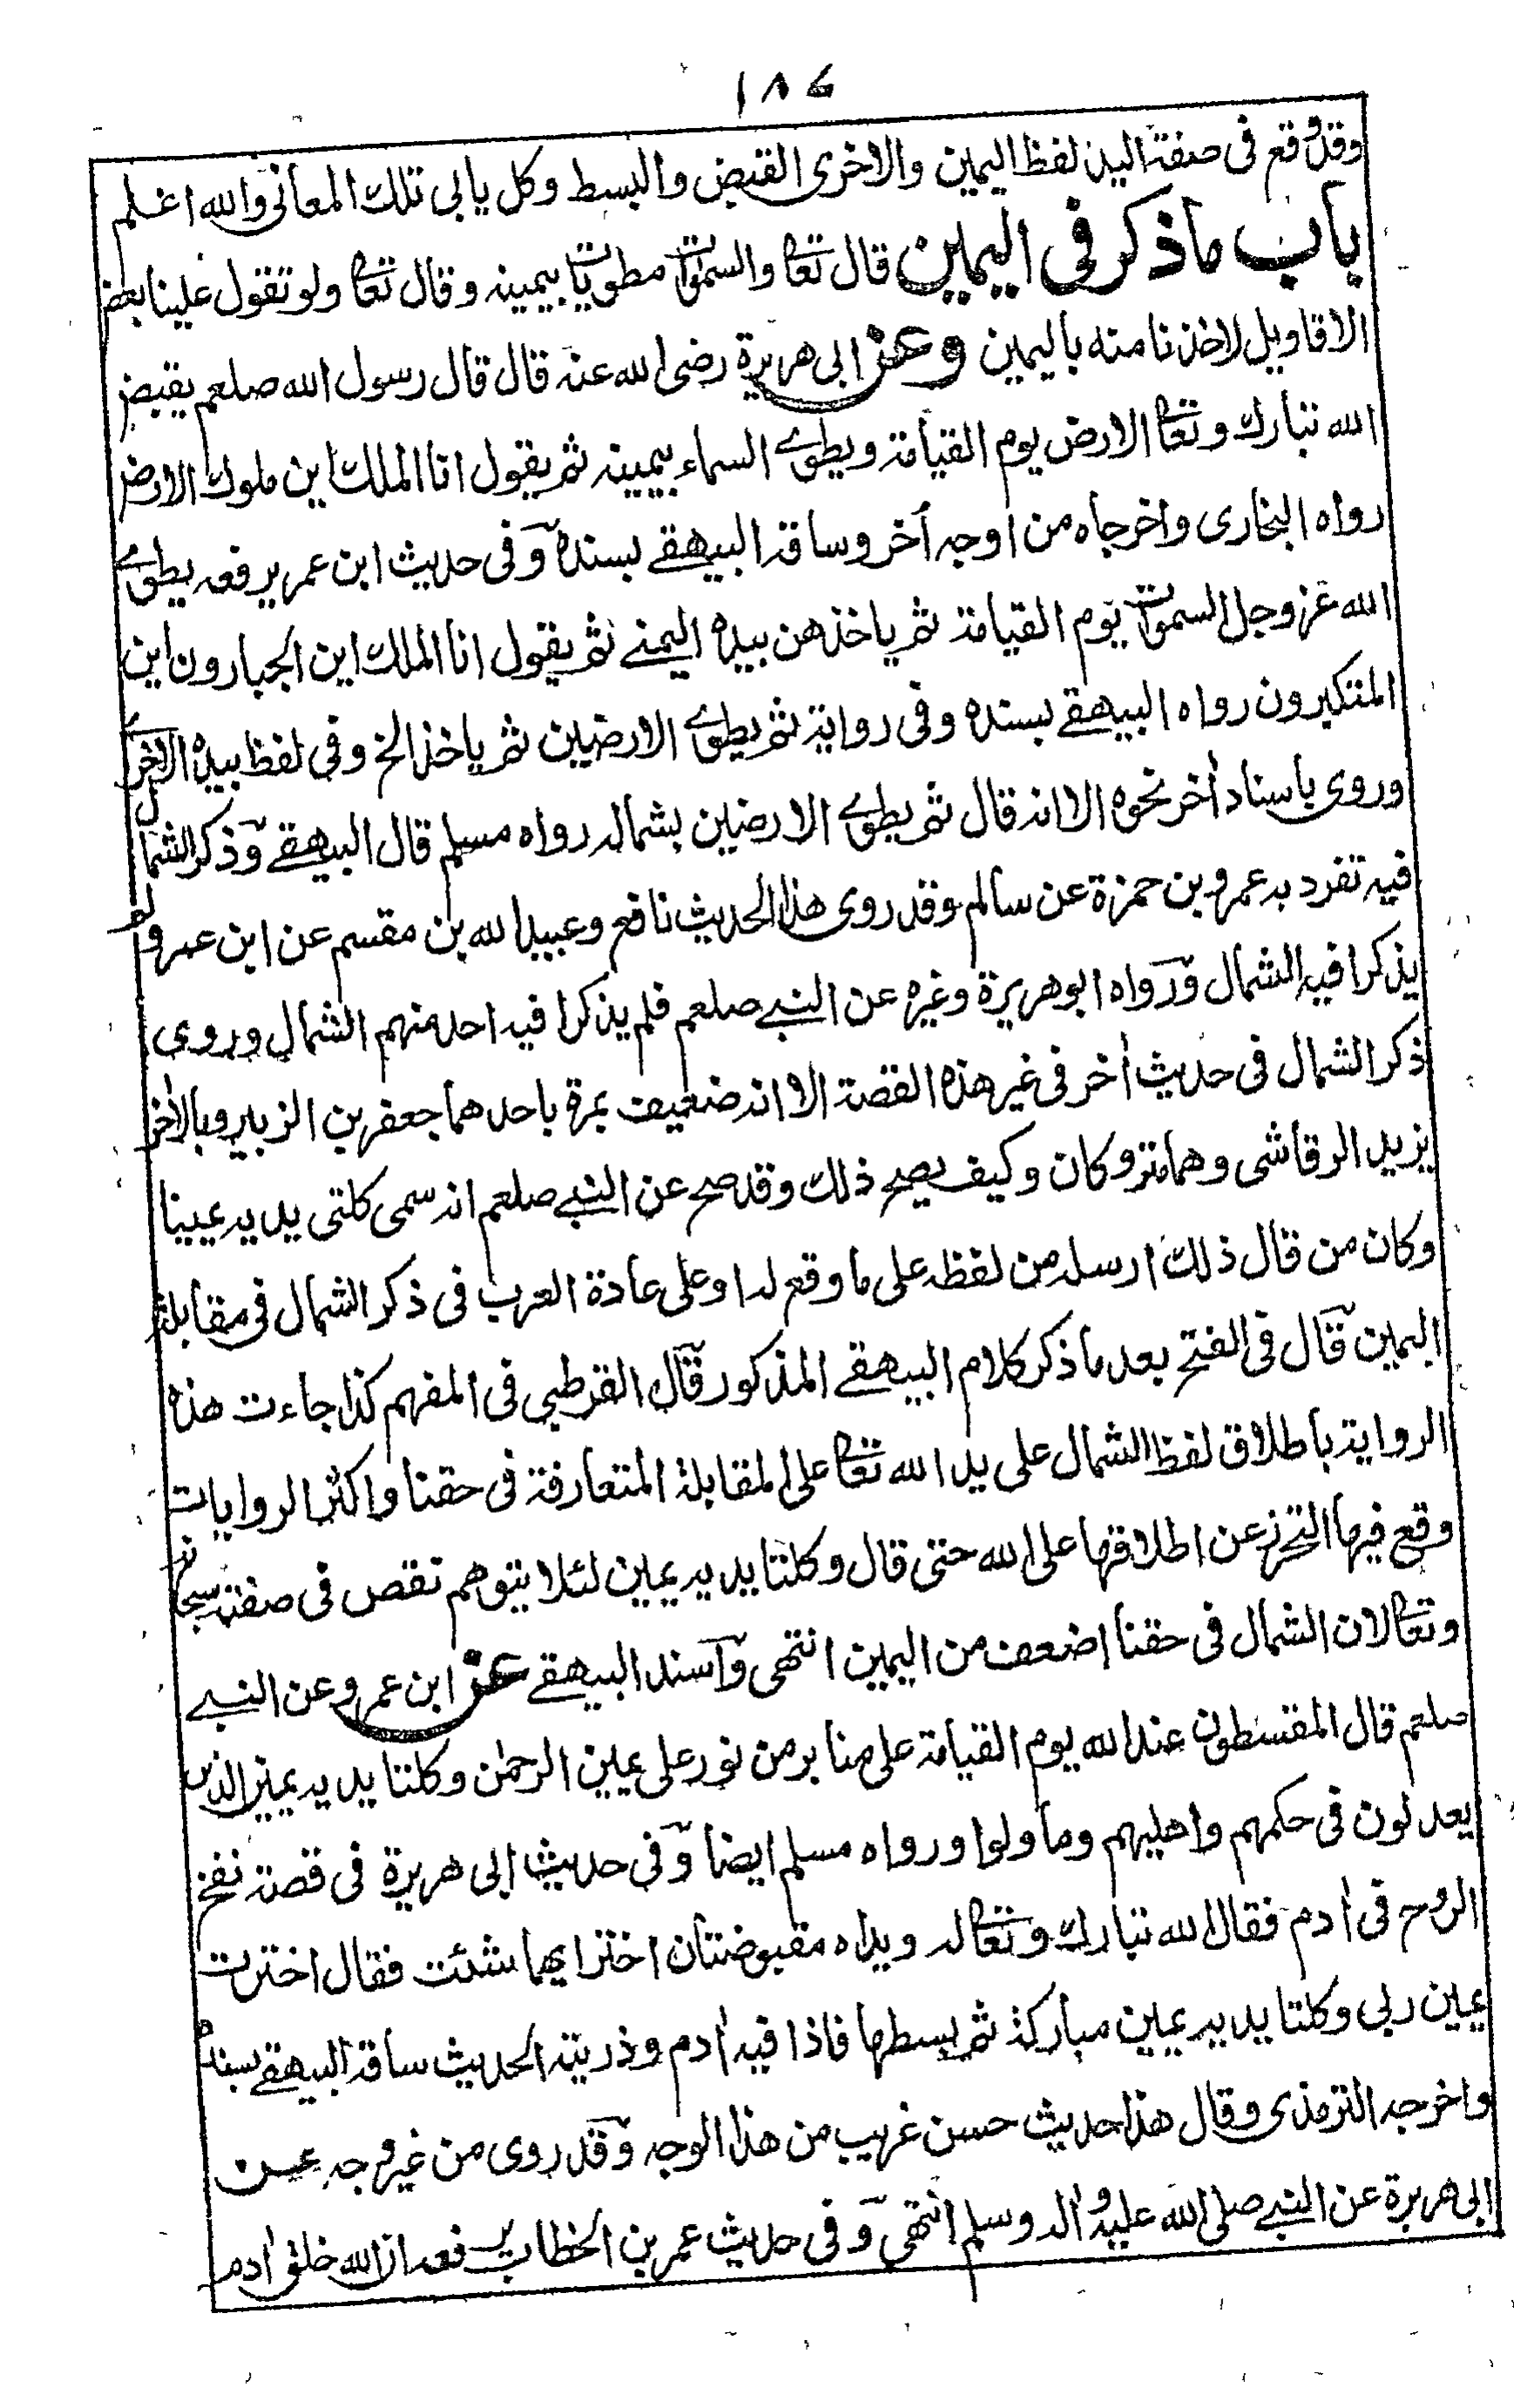 ١٨٦
وقد وقع فى صفة اليد لفظ اليمين والاخرى القبض والبسط وكل يابى تلك المعانى والله اعلم
باب ما ذكر فى اليمين قال تعالى والسموات مطويات بيمينه وقال تعالى ولو تقول علينا بعض
الاقاويل لاخذنا منه باليمين وعن ابى هريرة رضى الله عنه قال قال رسول الله صلعم يقبض
الله تبارك وتعالى الارض يوم القيامة ويطوى السماء بيمينه ثم يقول انا الملك اين ملوك الارض
رواه البخارى واخرجاه من اوجه أخر وساقه البيهقى بسنده وفى حديث ابن عمر يرفعه يطوى
الله عز وجل السموات يوم القيامة ثم ياخذهن بيده اليمنى ثم يقول انا الملك اين الجبارون اين
المتكبرون رواه البيهقى بسنده وفى رواية ثم يطوى الارضين ثم ياخذ الخ وفى لفظ بيده الاخرى
وروى باسناد أخر نحوه الا انه قال ثم يطوى الارضين بشماله رواه مسلم قال البيهقى وذكر الشمال
فيه تفرد به عمرو بن حمزة عن سالم وقد روى هذا الحديث نافع وعبيد الله بن مقسم عن ابن عمر ولم
يذكرا فيه الشمال ورواه ابو هريرة وغيره عن النبى صلعم فلم يذكرا فيه احد منهم الشمال وروى
ذكر الشمال فى حديث أخر فى غير هذه القصة الا انه ضعيف بمرة باحدهما جعفر بن الزبير وبالأخر
يزيد الرقاشى وهما متروكان وكيف يصح ذلك وقد صح عن النبى صلعم انه سمى كلتى يديه يمينا
وكان من قال ذلك ارسله من لفظه على ما وقع له او على عادة العرب فى ذكر الشمال فى مقابلة
اليمين قال فى الفتح بعد ما ذكر كلام البيهقى المذكور قال القرطبى فى المفهم كذا جاءت هذه
الرواية باطلاق لفظ الشمال على يد الله تعالى على المقابلة المتعارفة فى حقنا واكثر الروايات
وقع فيها التحرز عن اطلاقها على الله حتى قال وكلتا يديه يمين لئلا يتوهم نقص فى صفته سبحانه
وتعالى لان الشمال فى حقنا اضعف من اليمين انتهى وأسند البيهقى عن ابن عمرو عن النبى
صلعم قال المقسطون عند الله يوم القيامة على منابر من نور على يمين الرحمٰن وكلتا يديه يمين الذين
يعدلون فى حكمهم واهليهم وما ولوا ورواه مسلم ايضا وفى حديث ابى هريرة فى قصة نفخ
الروح فى أدم فقال الله تبارك وتعالى له ويداه مقبوضتان اختر ايهما شئت فقال اخترت
يمين ربى وكلتا يديه يمين مباركة ثم بسطها فاذا فيه أدم وذريته الحديث ساقه البيهقى بسنده
واخرجه الترمذى وقال هذا حديث حسن غريب من هذا الوجه وقد روى من غير وجه عن
ابى هريرة عن النبى صلى الله عليه وأله وسلم انتهى وفى حديث عمر بن الخطاب يرفعه ان الله خلق أدم